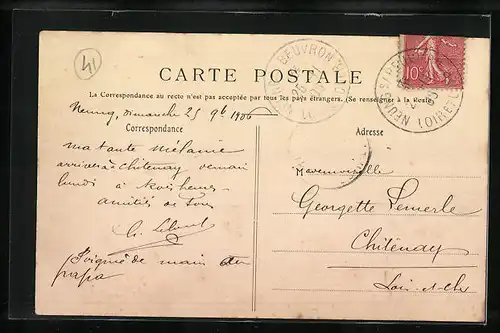 41
CARTE POSTALE
La Correspondance au recto n'est pas acceptée par tous les pays étrangers. (Se renseigner à la Poste)
Neung, dimanche 25 9bre 1906
Correspondance
Adresse
ma tante Mélanie
arrivera à Chitenay demain
lundi à trois heures
amitiés de tous
Soignée de main du
papa
Mademoiselle
Georgette Lemerle
Chitenay
Loir-et-Cher
10c
BEUVRON
NEUNG S/ BEUVRON
LOIR-ET-CHER